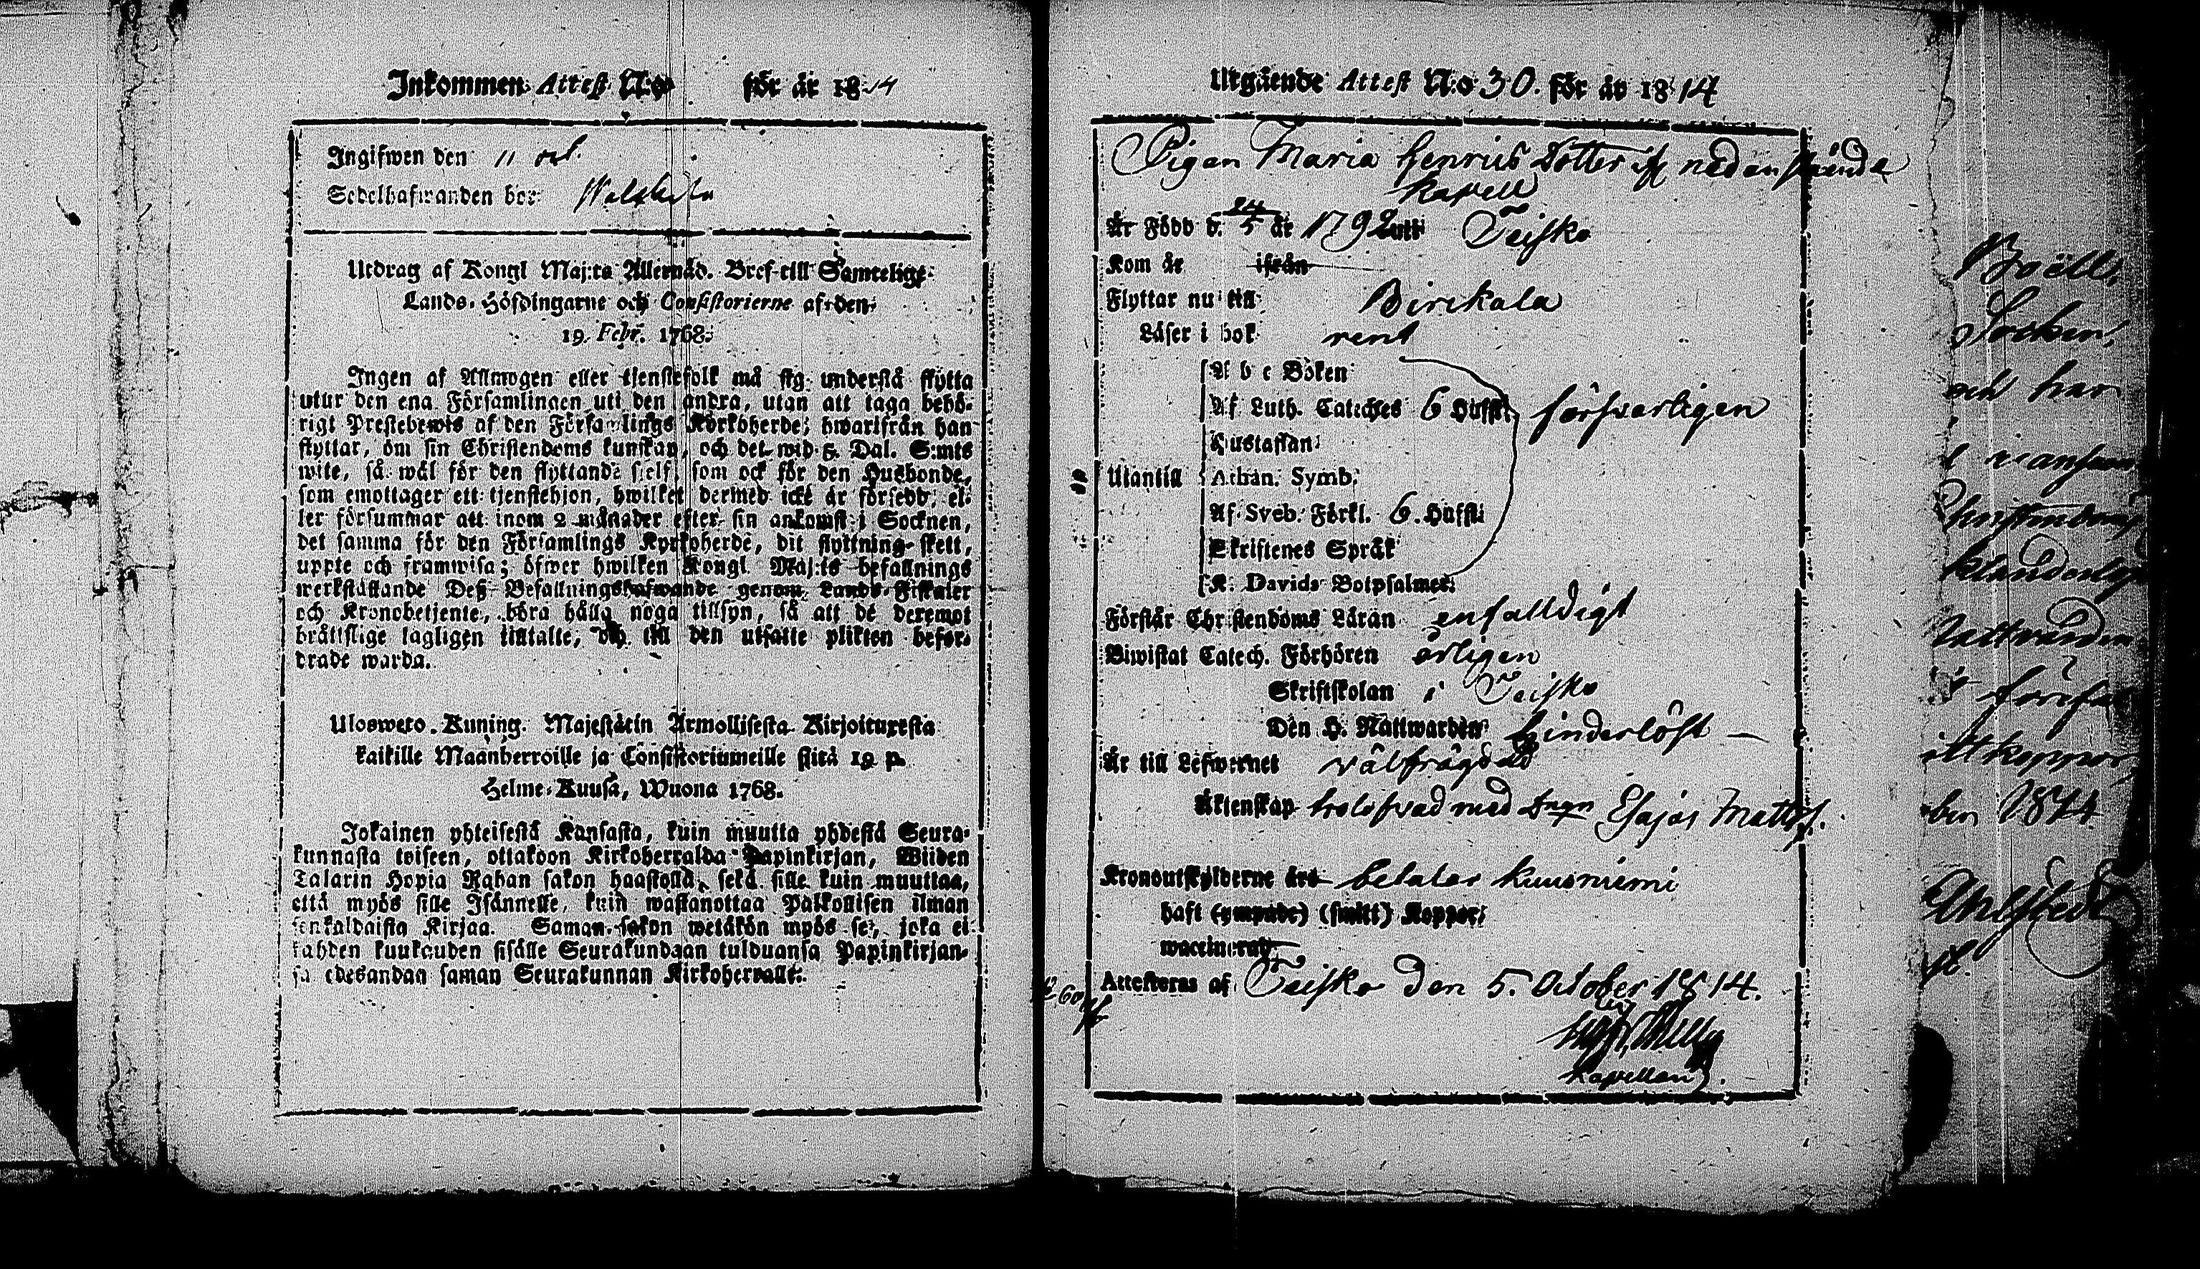 Inkommen Attest N:o för år 1814
Ingifwen den 11 oct.
Sedelhafwanden bor
Utdrag af Kongl Maj:ts Allernåd. Bref till Samtelige
Lands-Höfdingarne och Consistorierne af den
19 Febr. 1768.
Ingen af Allmogen eller tjenstefolk må sig understå flytta
utur den ena Församlingen uti den andra, utan att taga behö-
rigt Prestebewis af den Församlings Kyrkoherde, hwarifrån han
flyttar, om sin Christendoms kunskap, och det wid 5 Dal. S:mts
wite, så wäl för den flyttande sjelf, som ock för den Husbonde,
som emottager ett tjenstehjon, hwilket dermed icke är försedd, el-
ler försummar att inom 2 månader efter sin ankomst i Socknen,
det samma för den Församlings Kyrkoherde, dit flyttning skett,
uppte och framwisa; öfwer hwilken Kongl Maj:ts befallnings
werkställande Deß Befallningshafwande genom Lands-Fiskaler
och Kronobetjente, böra hålla noga tillsyn, så att de deremot
bråttslige lagligen tilltalte, och till den utsatte plikten befor-
drade warda.
Ulosweto Kuning. Majestätin Armollisesta Kirjoituxesta
kaikille Maanherroille ja Consistoriumeille siitä 19 p.
Helme-Kuusa, Wuona 1768.
Jokainen yhteisestä Kansasta, kuin muutta yhdestä Seura-
kunnasta toiseen, ottakoon Kirkoherralda Papinkirjan, Wiiden
Talarin Hopia Rahan sakon haastolla, sekä sille kuin muuttaa,
että myös sille Isännelle, kuin wastanottaa Palkollisen ilman
senkaldaista Kirjaa. Saman sakon wetäkön myös se, joka ei
kahden kuukauden sisälle Seurakundaan tulduansa Papinkirjan-
sa edesandan saman Seurakunnan Kirkoherralle.
Utgående Attest N:o 30. för år 1814
Pigan Maria Henrics Dotter nedanstående
kapell
Är Född d. 24/5 år 1792 uti Teisko
Kom år ifrån
Flyttar nu till Birckala
Läser i bok rent
A b c Boken
Af Luth. Catéches 6 Hufst. försvarligen
Hustaflan
Utantill Athan. Symb.
Af Sveb. Förkl. 6. Hufst.
Skriftenes Språk
K. Davids Botpsalmer
Förstår Christendoms Läran enfalldigt
Biwistat Catech. Förhören årligen
Skriftskolan i Teisko
Den H. Nattwarden hinderlöst —
Är till Lefwernet välfrägdad
Äktenskap trolofvad med Drgn Esajas Matts.
Kronoutskylderne äro betalar Kuusniemi
haft (ympade) (smitt) Koppor
waccinerad
Attesteras af Teisko den 5. October 1814.
Kapellan
Socken
och har
Nattvarden
Ahlstedt